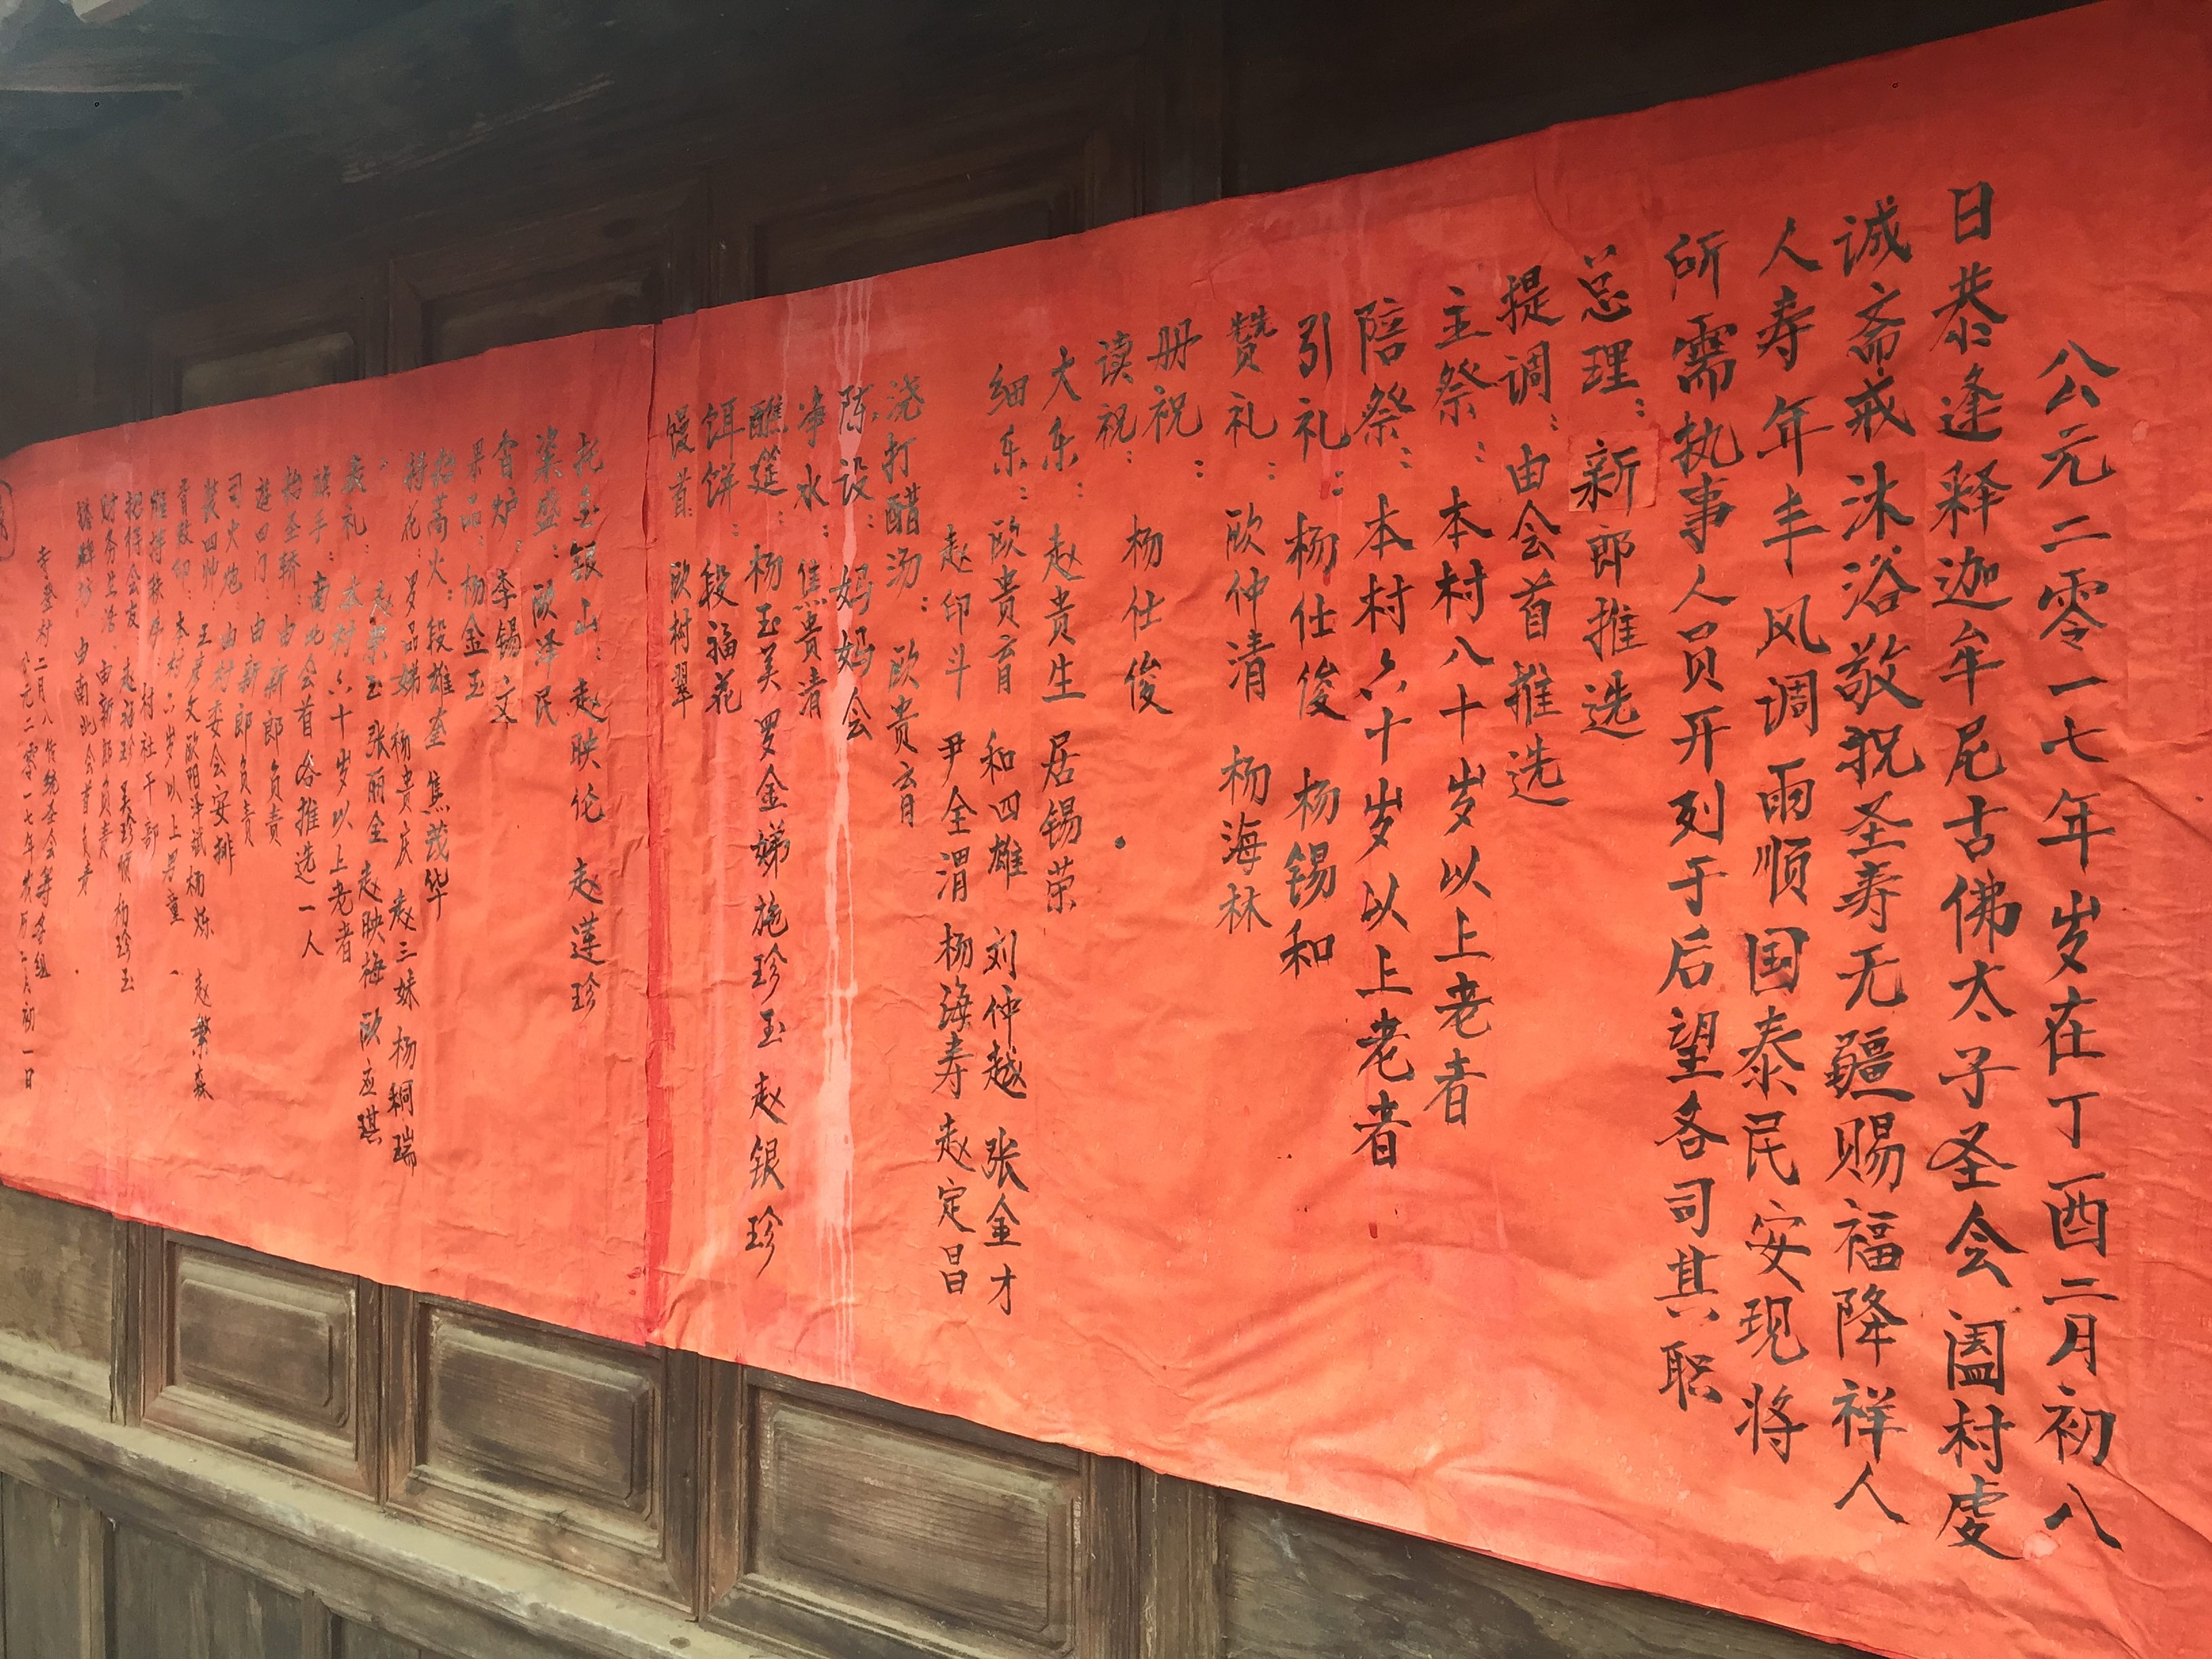 公元二零一七年岁在丁酉二月初八
日恭逢释迦牟尼古佛太子圣会阖村虔
诚斋戒沐浴敬祝圣寿无疆赐福降祥人
人寿年丰风调雨顺国泰民安现将
所需执事人员开列于后望各司其职
总理：新郎推选
提调：由会首推选
主祭：本村八十岁以上老者
陪祭：本村六十岁以上老者
引礼：杨仕俊 杨锡和
赞礼：欧仲清 杨海林
册祝：
读祝：杨仕俊
大乐：赵贵生 居锡荣
细乐：欧贵育 和四雄 刘仲越 张金才
赵印斗 尹全渭 杨海寿 赵定昌
浇打醋汤：欧贵育
陈设：妈妈会
净水：焦贵清
醮筵：杨玉美 罗金娣 施珍玉 赵银珍
饵饼：段福花
馒首 欧树翠
托金银山：赵映伦 赵莲珍
粢盛：欧泽民
香炉：李锡文
果品：杨金玉
招蒿火：段雄奎 焦茂华
持花：罗品娣 杨贵庆 赵三妹 杨穆瑞
赵荣玉 张丽全 赵映梅 欧应琪
表礼：本村六十岁以上老者
旗手：南北会首各推选一人
抬圣轿：由新郎负责
游四门：由新郎负责
司火炮：由村委会安排
装四帅：王彦文 欧阳泽斌 杨烁 赵繁森
背敕印：本村六岁以上男童一
维持秩序：村社干部
招待会友：赵福珍 吴珍 杨珍玉
财务生活：由新郎负责
搭牌坊：由南北会首负责
寺登村二月八传统圣会筹备组
公元二零一七年农历二月初一日